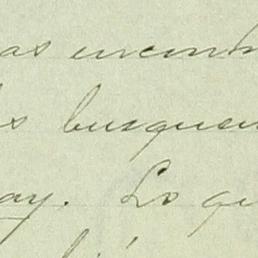 as encont
s busquen
ay. Lo qu